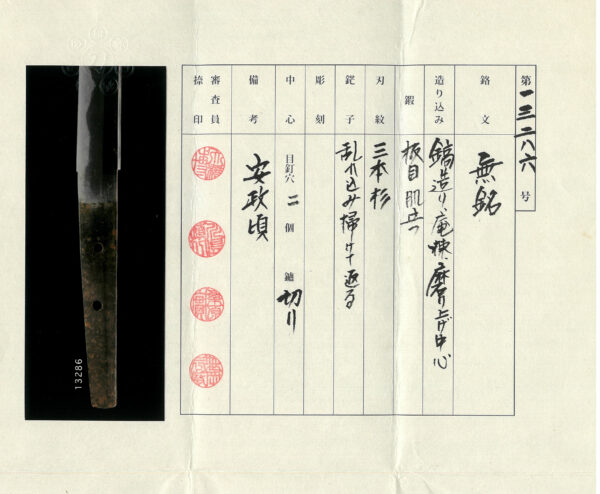 第一三二八六号
銘文 無銘
造り込み 鎬造り、庵棟、磨り上げ中心
鍛 板目肌立つ
刃紋 三本杉
鋩子 乱れ込み掃けて返る
彫刻
中心 目釘穴 二 個 鑢 切り
備考 安政頃
審査員
捺印
13286